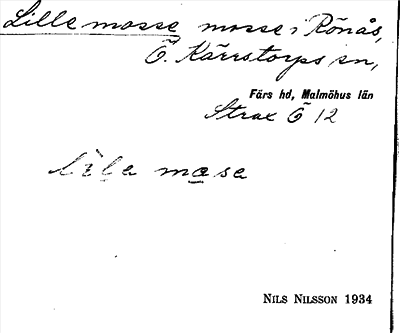 Lille mosse mosse i Rönås,
Ö. Kärrstorps sn,
Färs hd, Malmöhus län
Strax Ö 12
lila mosa
NILS NILSSON 1934